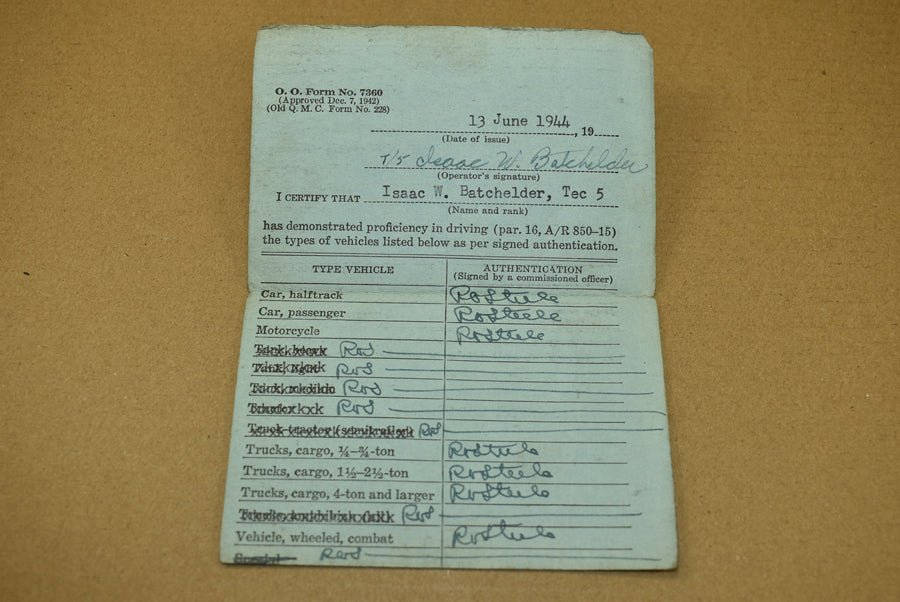 O. O. Form No. 7360
(Approved Dec. 7, 1942)
(Old Q. M. C. Form No. 228)
13 June 1944, 19
(Date of issue)
T/5 Isaac W. Batchelder
(Operator's signature)
I CERTIFY THAT Isaac W. Batchelder, Tec 5
(Name and rank)
has demonstrated proficiency in driving (par. 16, A/R 850–15)
the types of vehicles listed below as per signed authentication.
TYPE VEHICLE AUTHENTICATION
(Signed by a commissioned officer)
Car, halftrack RoSteele
Car, passenger RoSteele
Motorcycle RoSteele
Tank, heavy RoS
Tank, light RoS
Tank, medium RoS
RoS
Truck-tractor (semitrailer) RoS
Trucks, cargo, ¼–¾-ton RoSteele
Trucks, cargo, 1½–2½-ton RoSteele
Trucks, cargo, 4-ton and larger RoSteele
RoS
Vehicle, wheeled, combat RoSteele
Special RoS